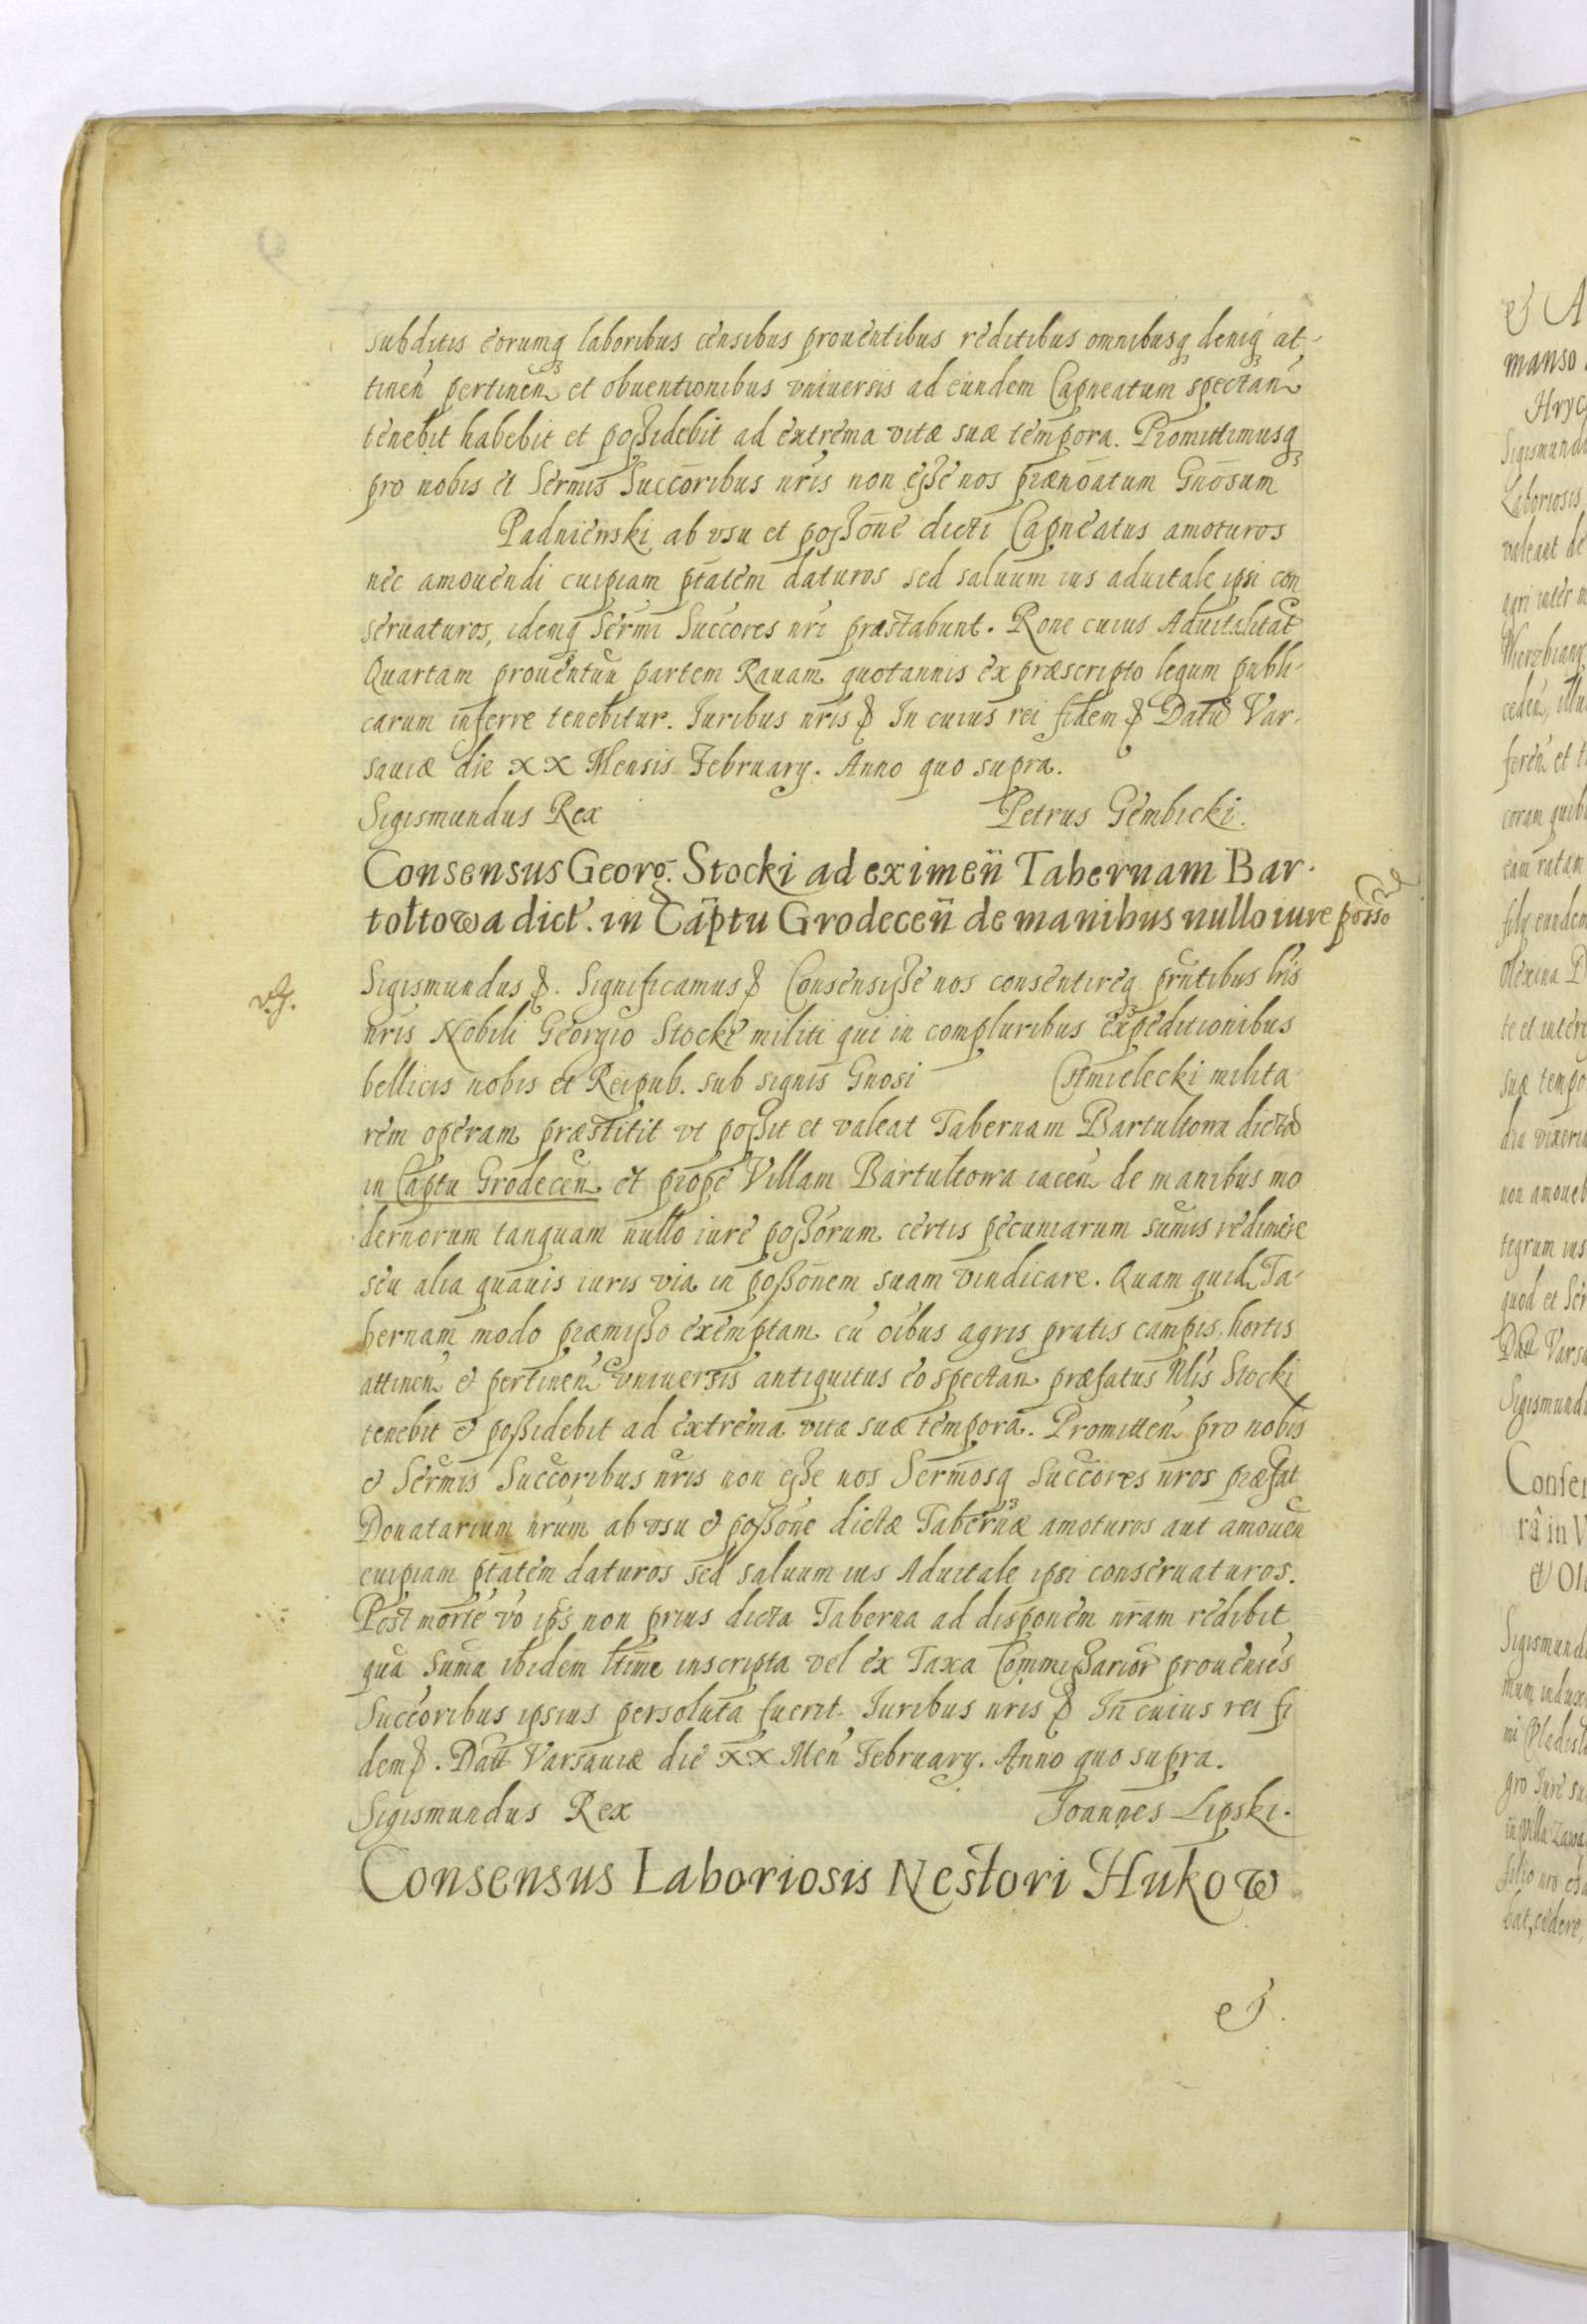 subditis eorumq laboribus censibus prouentibus reditibus omnibusq deniq at-
tinen pertinen et obuentionibus vniuersis ad eundem Capneatum spectan
tenebit habebit et possidebit ad extrema vitæ suæ tempora. Promittimusq
pro nobis et Sermis Succoribus nris non esse nos prænoatum Gnosum
Padniewski ab vsu et possone dicti Capneatus amoturos
nec amouendi cuipiam ptatem daturos sed saluum ius aduitale ipsi con
seruaturos, idemq Sermi Succores nri præstabunt. Rone cuius Aduitalitat
Quartam prouentuu partem Rauam quotannis ex præscripto legum publi-
carum inferre tenebitur. Iuribus nris & In cuius rei fidem & Datu Var-
sauiæ die XX Mensis February. Anno quo supra.
Sigismundus Rex Petrus Gembicki.
Consensus Georg. Stocki ad eximen Tabernam Bar-
toltowa dict. in Captu Grodecen de manibus nullo iure posso
Sigismundus &. Significamus & Consensisse nos consentireq prntibus lris
nris Nobili Georgio Stocki militi qui in compluribus expeditionibus
bellicis nobis et Reipub. sub signis Gnosi Chmielecki milita
rem operam præstitit vt possit et valeat Tabernam Bartultowa dicta
in Captu Grodecen et prope Villam Bartultowa iacen de manibus mo
dernorum tanquam nullo iure possorum certis pecuniarum sumis redimere
seu alia quauis iuris via in possonem suam vindicare. Quam quid Ta-
bernam modo præmisso exemptam cu oibus agris pratis campis, hortis
attinen & pertinen vniuersis antiquitus eo spectan præfatus Nlis Stocki
tenebit & possidebit ad extrema vitæ suæ tempora. Promitten pro nobis
& Sermis Succoribus nris non esse nos Sermosq Succores nros præfat
Donatarium nrum ab vsu & possone dictæ Tabernæ amoturos aut amouen
cuipiam ptatem daturos sed saluum ius Aduitale ipsi conseruaturos.
Post morte vo ips non prius dicta Taberna ad disponem nram redibit
qua suma ibidem ltime inscripta vel ex Taxa Commissarior proueniés
Succoribus ipsius persoluta fuerit. Iuribus nris & In cuius rei fi
dem &. Datt Varsauiæ die XX Men February. Anno quo supra.
Sigismundus Rex Ioannes Lipski.
Consensus Laboriosis Nestori Hukow
&